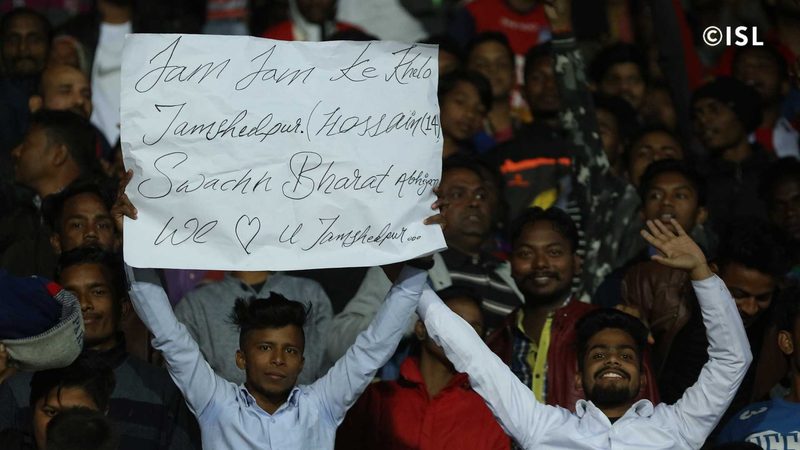 ©ISL
Jam Jam Ke Khelo
Jamshedpur. (Hossain (14)
Swachh Bharat Abhiyan
We ♡ U Jamshedpur...